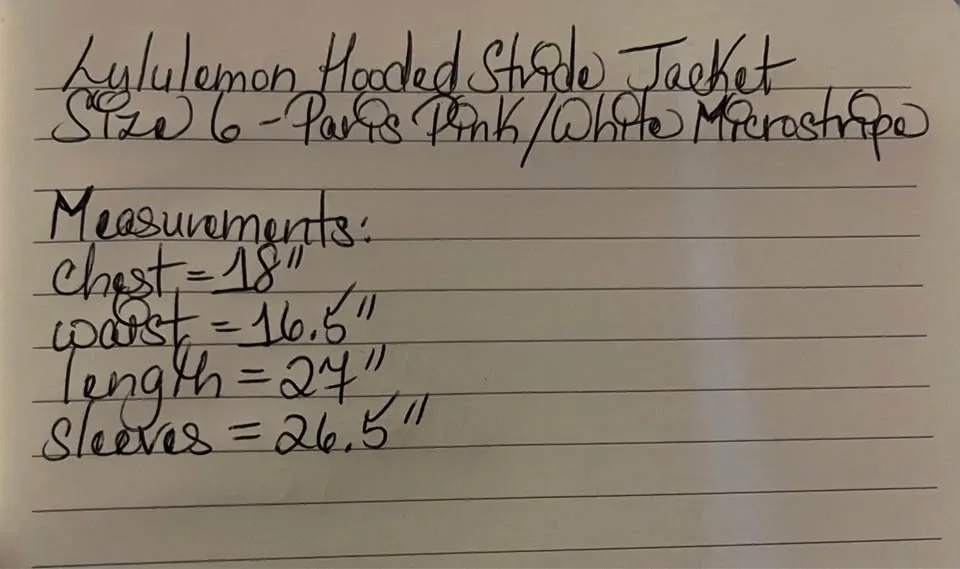 Lululemon Hooded Stride Jacket
Size 6 - Paris Pink/White Microstripe
Measurements:
chest = 18"
waist = 16.5"
length = 27"
sleeves = 26.5"